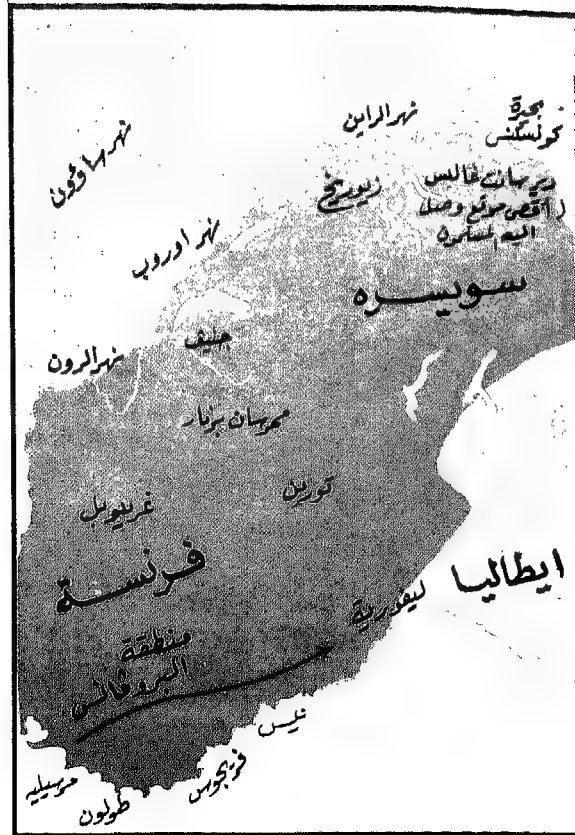 بحيرة
كونستنس
نهر الراين
نهر ساؤون
دير سانت غاليس
( اقصى موقع وصل
اليه المسلمون
زيوريخ
نهر اوروب
سويسره
جنيف
نهر الرون
ممر سان برنار
تورين
غرينوبل
فرنسة
ايطاليا
ليغورية
منطقة
البروفانس
نيس
فريجوس
مرسيليه
طولون